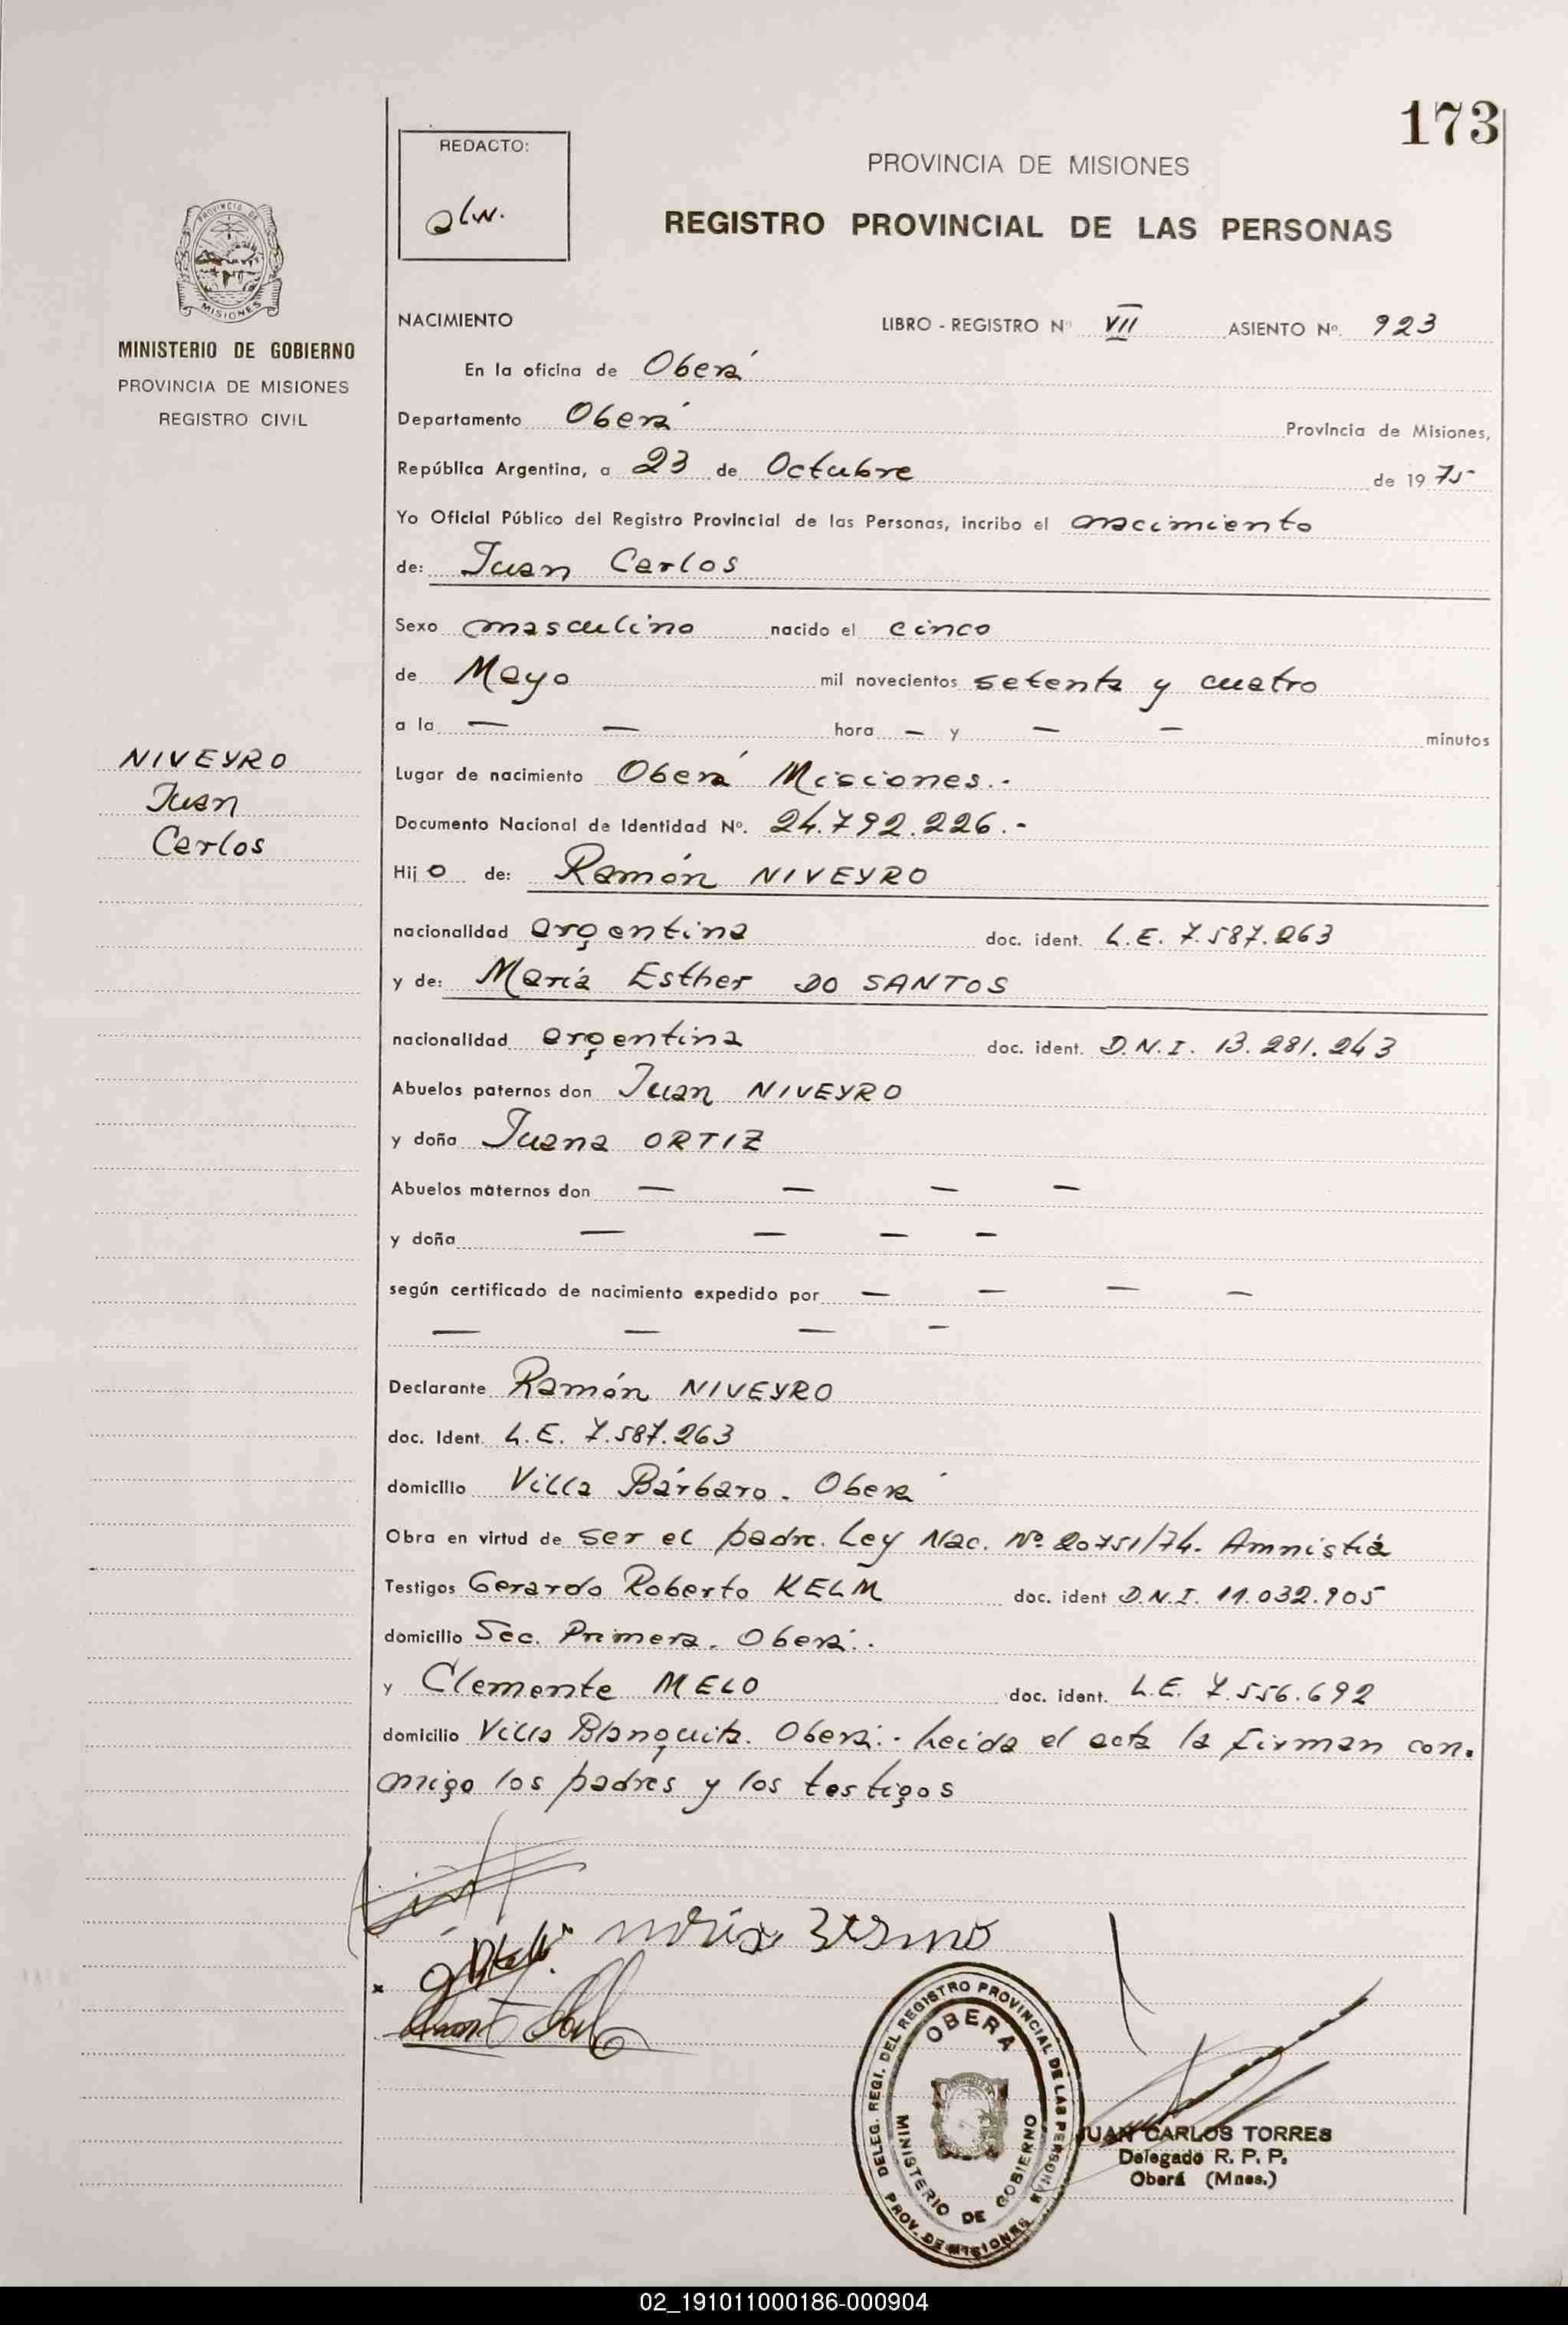 173
REDACTO:
alw.
PROVINCIA DE MISIONES
REGISTRO PROVINCIAL DE LAS PERSONAS
PROVINCIA DE
MISIONES
MINISTERIO DE GOBIERNO
PROVINCIA DE MISIONES
REGISTRO CIVIL
NACIMIENTO LIBRO - REGISTRO Nº VII ASIENTO Nº. 923
En la oficina de Oberá
Departamento Oberá Provincia de Misiones,
República Argentina, a 23 de Octubre de 1975
Yo Oficial Público del Registro Provincial de las Personas, incribo el nacimiento
de: Juan Carlos
Sexo masculino nacido el cinco
de Mayo mil novecientos setenta y cuatro
a la — — hora — y — — minutos
NIVEYRO
Juan
Carlos
Lugar de nacimiento Oberá Misiones.-
Documento Nacional de Identidad Nº. 24.792.226.-
Hijo de: Ramón NIVEYRO
nacionalidad argentina doc. ident. L.E. 7.587.263
y de: María Esther DO SANTOS
nacionalidad argentina doc. ident. D.N.I. 13.281.243
Abuelos paternos don Juan NIVEYRO
y doña Juana ORTIZ
Abuelos maternos don — — — —
y doña — — — —
según certificado de nacimiento expedido por — — — —
— — — —
Declarante Ramón NIVEYRO
doc. Ident. L.E. 7.587.263
domicilio Villa Bárbaro. Oberá
Obra en virtud de ser el padre. Ley Nac. Nº 20751/74. Amnistía
Testigos Gerardo Roberto KELM doc. ident D.N.I. 11.032.905
domicilio Sec. Primera. Oberá.
y Clemente MELO doc. ident. L.E. 7.556.692
domicilio Villa Blanquita. Oberá.- Leida el acta la firman con-
migo los padres y los testigos
DELEG. REGI. DEL REGISTRO PROVINCIAL DE LAS PERSONAS
OBERA
MINISTERIO DE GOBIERNO
PROV. DE MISIONES
JUAN CARLOS TORRES
Delegado R. P. P.
Oberá (Mnes.)
02_191011000186-000904